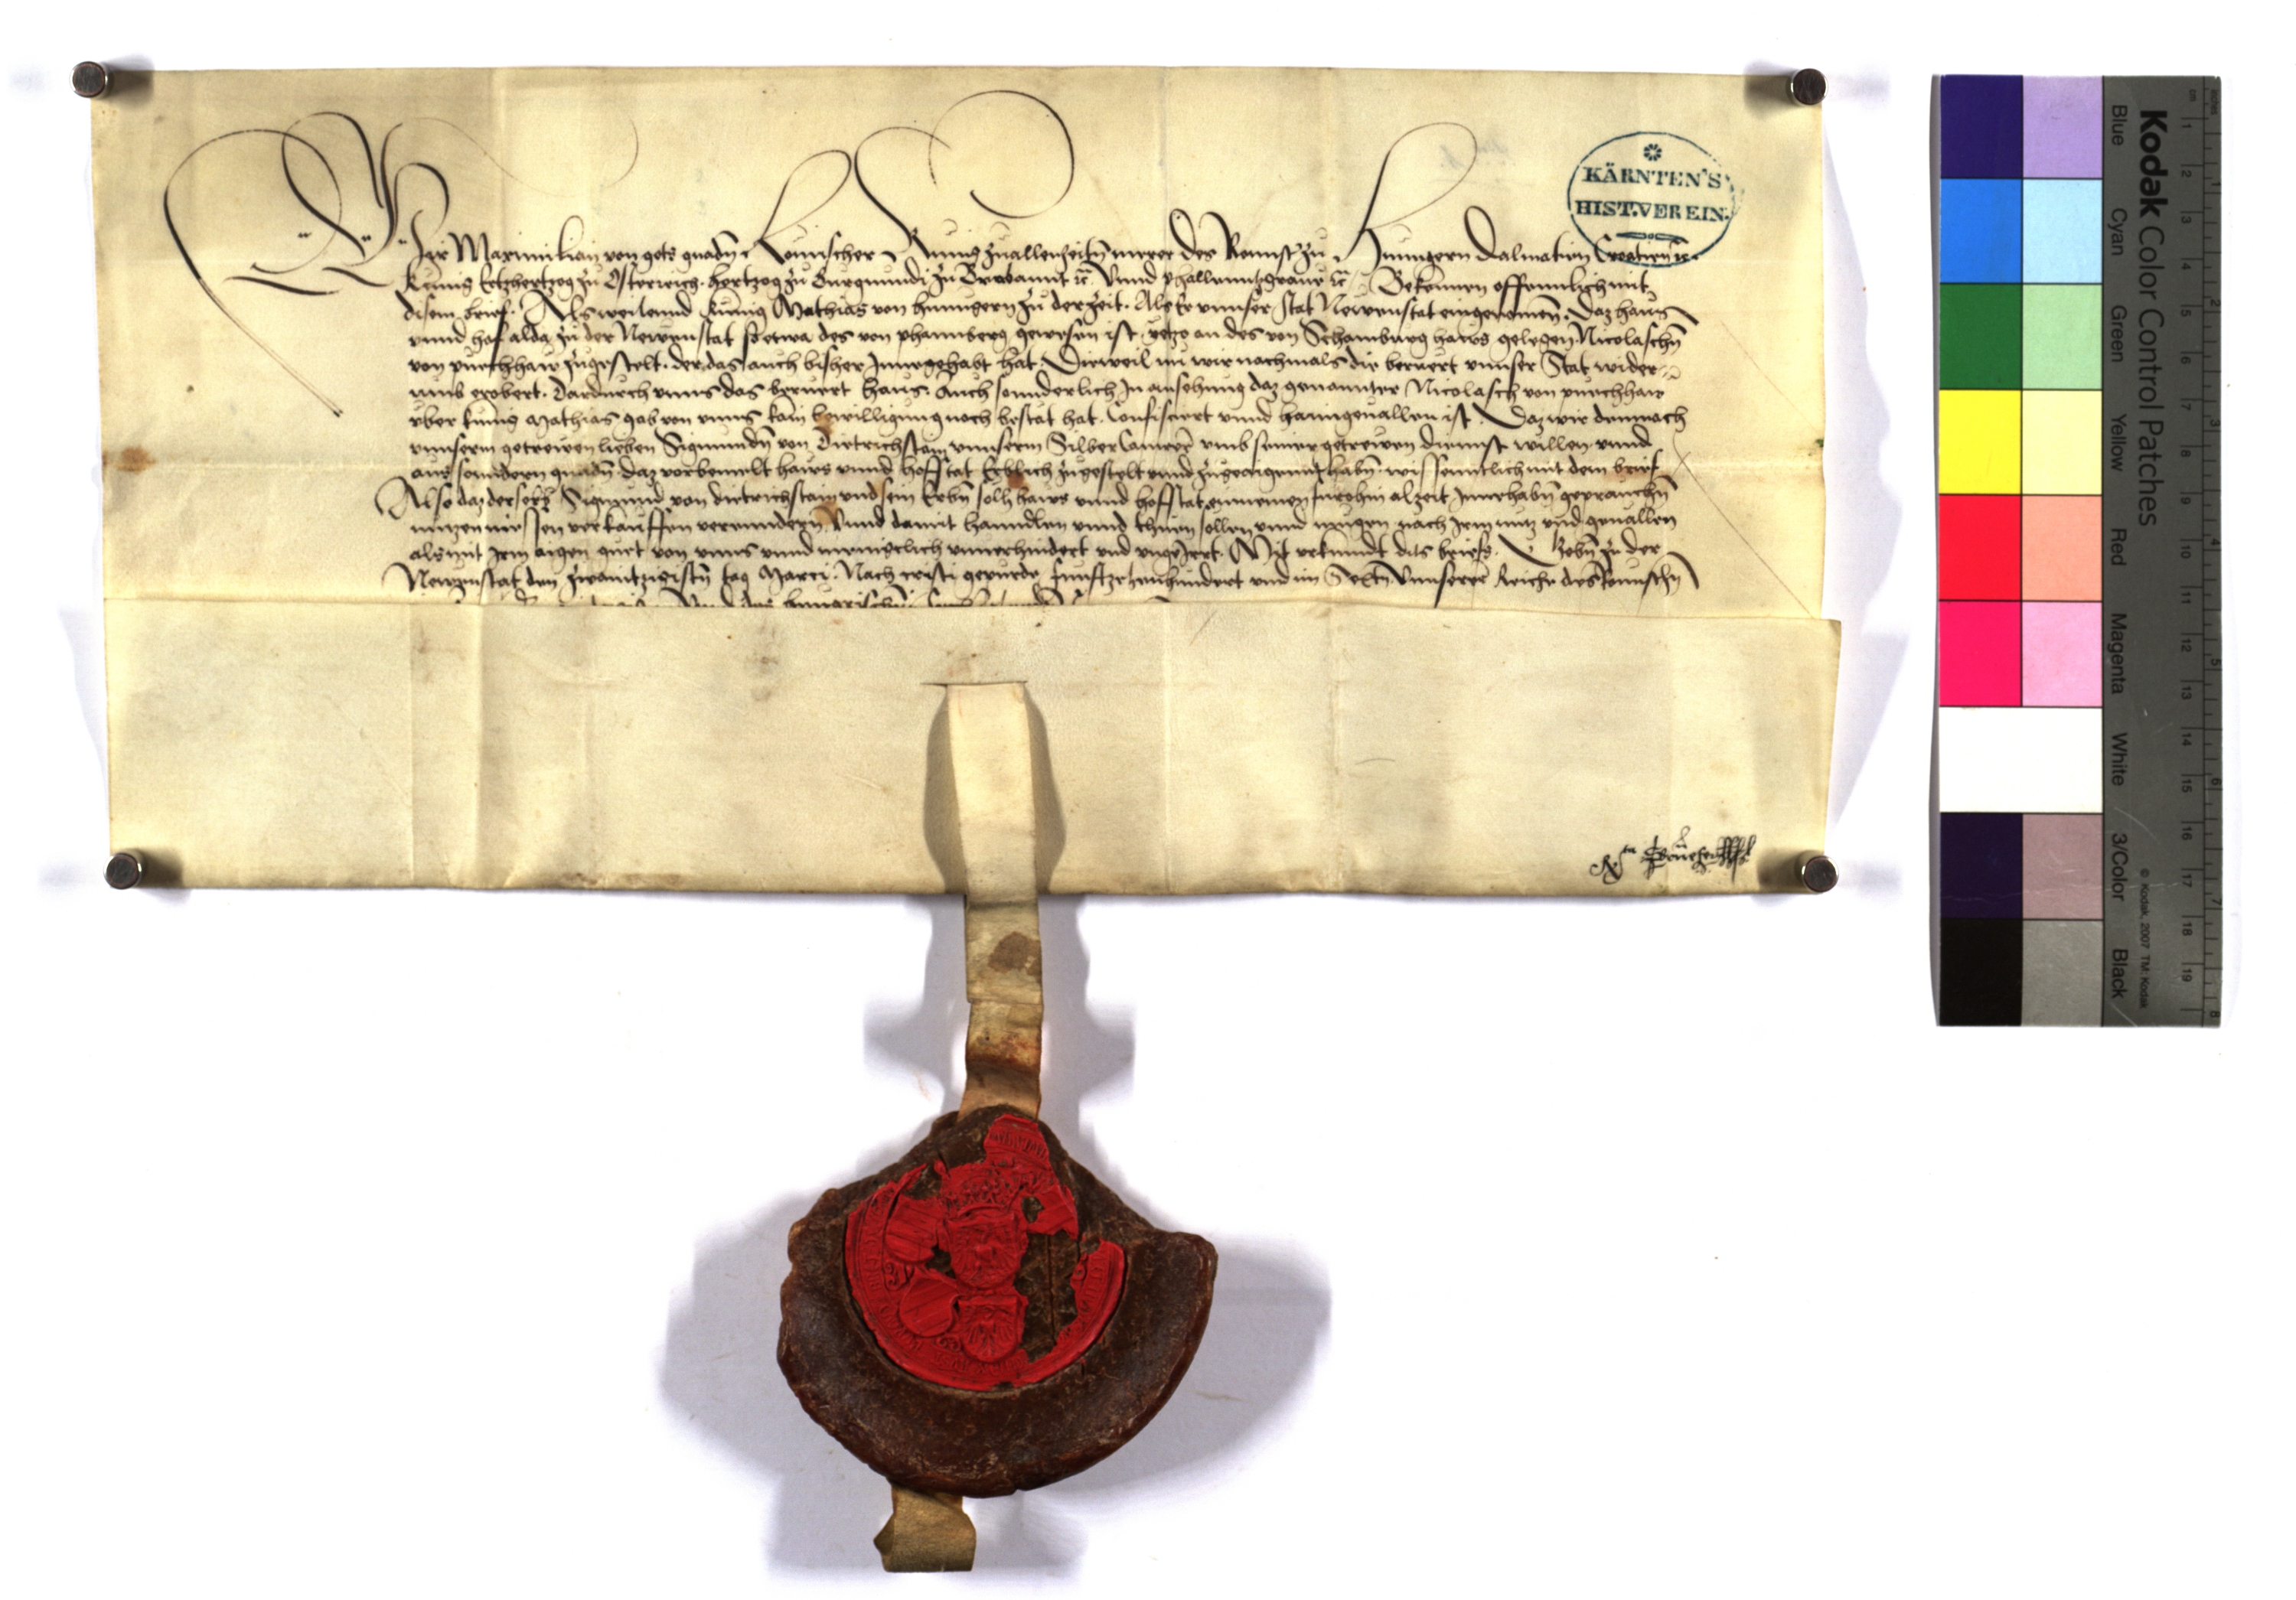 Wir Maximilian von gots gnadn Römischer Kunig zuallenzeitn merer des Reichs zu Hunngern Dalmatien Croatien ꝛc.
KÄRNTEN'S
HIST. VEREIN.
Kunig Ertzhertzog zu Österreich. hertzog zu Burgundi zu Brabannt ꝛc. Vnnd phallenntzgraue ꝛc. Bekennen offennlich mit
disem brief. Als weilennd kunig Mathias von hunngern zu der zeit. Als Er vnnser stat Newenstat eingenomen. Daz haus
vnnd hof alda zu der Newenstat so etwa des von phannberg gewesen ist yetzo an des von Schaunburg haws gelegen Nicolaschn
von puechhaim zugestelt. der das auch bisher Innegehabt hat. Dieweil nu wir nachmals die beruert vnnser Stat wider-
umb erobert. Dardurch vnns das beruert haus. Auch sonnderlich In ansehung daz genannter Nicolasch von puechhaim
vber kunig Mathias gab von vnns kain bewilligung noch bestat hat. Confisciert vnnd haimgeuallen ist. Daz wir demnach
vnnserm getrewen lieben Sigmundn von Dietrichstain vnnserm Silber Camrer vmb seiner getrewen diennst willen vnnd
aus sonndern gnadn daz vorbemelt haws vnnd hofstat Erblich zugestelt vnnd zugeaigennt habn. wissenntlich mit dem brief
Also daz der selb Sigmund von dietrichstain vnd sein Erbn solh haws vnnd hofstat einnemen furohin alzeit Innehabn geprauchn
nutzen niessen verkauffen verenndern. Vnnd damit hanndlen vnnd thuen sollen vnnd mugen nach Irm nutz vnd geuallen
als mit Irm aigen guet von vnns vnnd menigclich vnuerhindert vnd vngeirrt. Mit vrkunndt dits briefs. Gebn zu der
Newenstat den zwaintzigistn tag Marci. Nach cristi gepurde funftzehenhundert vnd im Sextn Vnnserer Reiche des Römischn
Kodak Color Control Patches
Blue Cyan Green Yellow Red Magenta White 3/Color Black
© Kodak, 2007 TM: Kodak
cm 1 2 3 4 5 6 7 8 9 10 11 12 13 14 15 16 17 18 19
inches 1 2 3 4 5 6 7 8